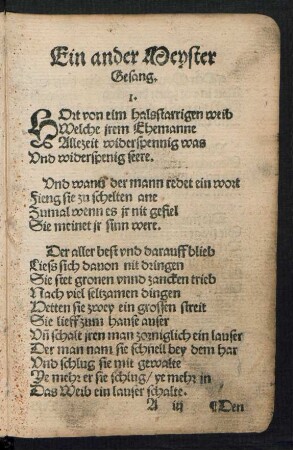 Ein ander Meyster
Gesang.
I.
HOrt von eim halsstarrigen weib
Welche jrem Ehemanne
Allezeit widerspennig was
Vnd widerspenig seere.
Vnd wann der mann redet ein wort
Fieng sie zu schelten ane
Zumal wenn es jr nit gefiel
Sie meinet jr sinn were.
Der aller best vnd darauff blieb
Ließ sich dauon nit dringen
Sie stet gronen vnnd zancken trieb
Nach viel seltzamen dingen
Hetten sie zwey ein grossen streit
Sie lieff zum hause auser
Vñ schalt jren man zorniglich ein lauser
Der man nam sie schnell bey dem har
Vnd schlug sie mit gewalte
Ye mehr er sie schlug/ ye mehr jn
Das Weib ein lauser schalte.
A iij ¶Den